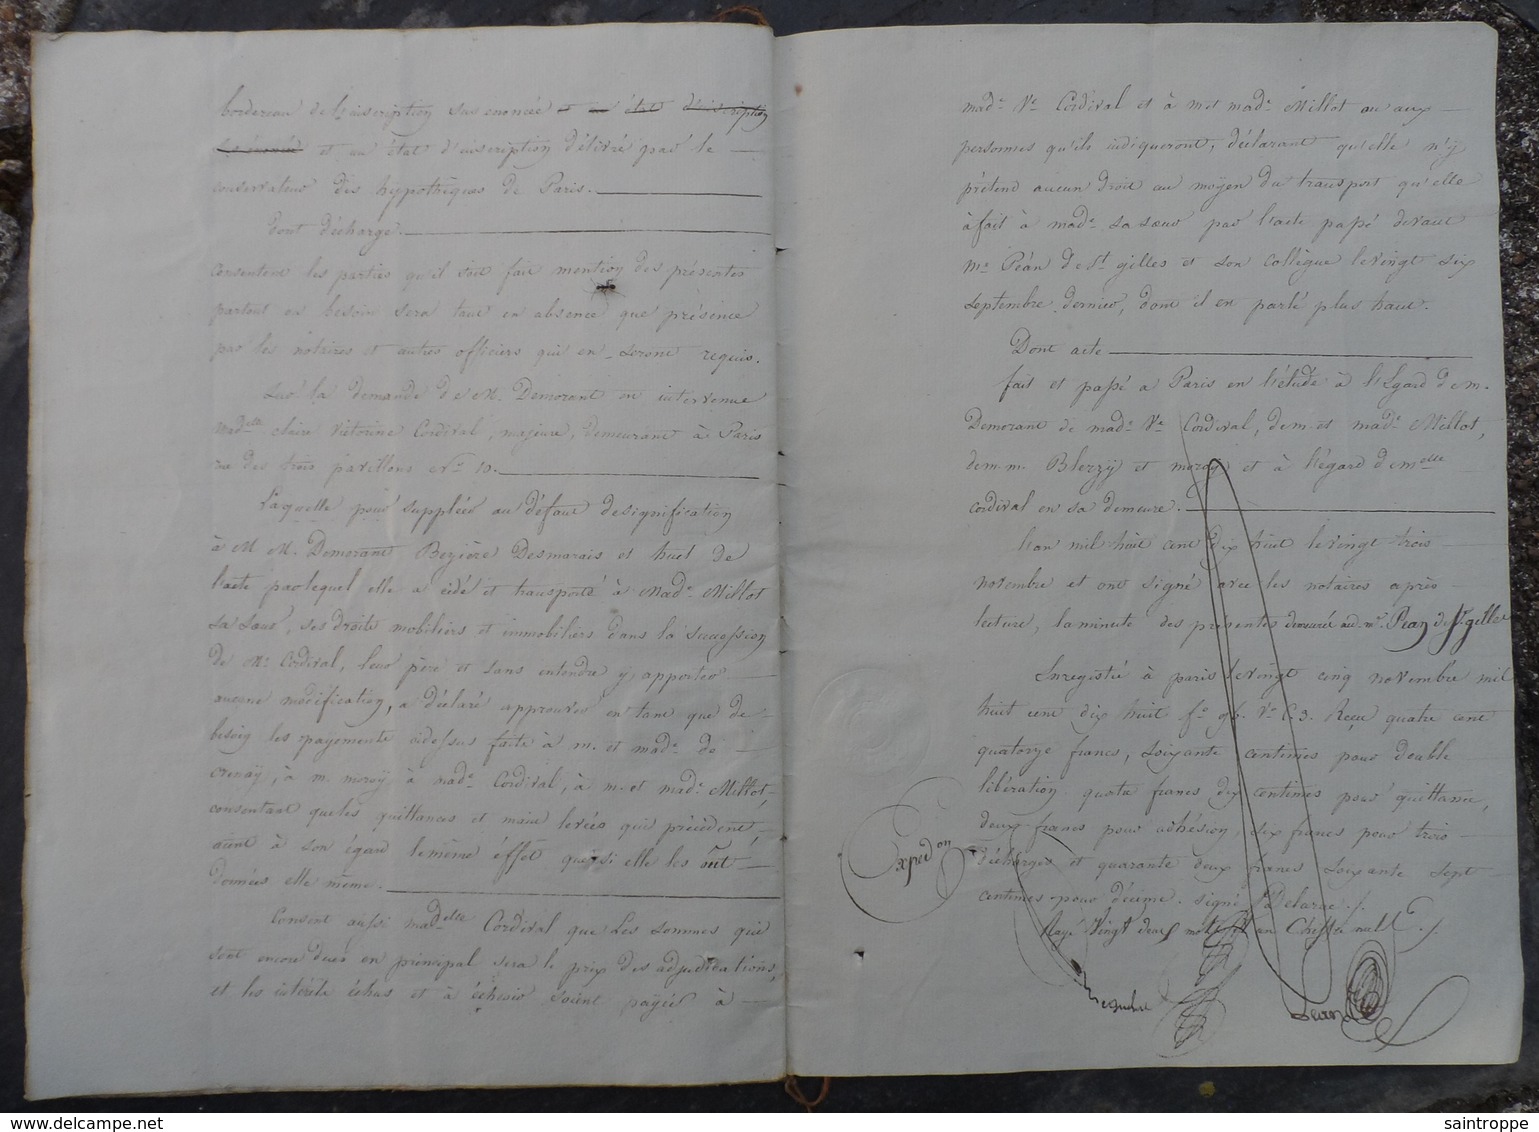 bordereau de l'inscription sus enoncée et un état d'inscription
sus énoncé et un état d'inscription délivré par le
conservateur des hyppothèques de Paris.
Dont décharge.
Consentent les parties qu'il soit fait mention des présentes
partout ou besoin sera tant en absence que présence
par les notaires et autres officiers qui en seront requis.
Sur la demande de M. Demorant est intervenue
Madelle claire victorine Cordival, majeure, demeurant à Paris
rue des trois pavillons No 10.
Laquelle pour suppléer au défaut designification
à M M. Demorant Bezière Desmarais et huet de
l'acte par lequel elle a cédé et transporté à Made Millot
sa sœur, ses droits mobiliers et immobiliers dans la succession
de Mr Cordival, leur père et sans entendre y apporter
aucune modification, a déclaré approuver en tant que de
besoin les payements cidessus faits à m. et made de
crenay, à m. moray à made Cordival, à m. et made Millot,
consentant que les quittances et main levées qui précédent,
aient à son égard le même effet que si elle les eut
données elle même.
Consent aussi madelle Cordival que les sommes qui
sont encore dues en principal sera le prix des adjudications,
et les intérêts échus et à échoir soient payés à
made Ve Cordival et à m et made Millot ou aux
personnes qu'ils indiqueront, déclarant qu'elle n'y
prétend aucun droit au moyen du transport qu'elle
a fait à made sa sœur par l'acte passé devant
Me Péan de St gilles et son collègue le vingt six
septembre dernier, dont il en parlé plus haut.
Dont acte
fait et passé a Paris en l'étude à l'égard de m.
Demorant de made Ve Cordival, de m. et made Millot,
de m. m. Blerzy et moray et à l'égard de melle
cordival en sa demeure.
L'an mil huit cent dix huit le vingt trois
novembre et ont signé avec les notaires après
lecture, la minute des présentes demeurée aud. Me Pean de St gilles
Enregistré à paris le vingt cinq novembre mil
huit cent dix huit fo 96. Vo C. 3. Reçu quatre cent
quatorze francs, soixante centimes pour double
libération quatre francs dix centimes pour quittance,
deux francs pour adhésion, six francs pour trois
décharges et quarante deux francs soixante sept
centimes pour décime. signé Delarue ./.
Rayé vingt deux mots et un chiffre nuls ./
Expedon
Pean
saintroppe